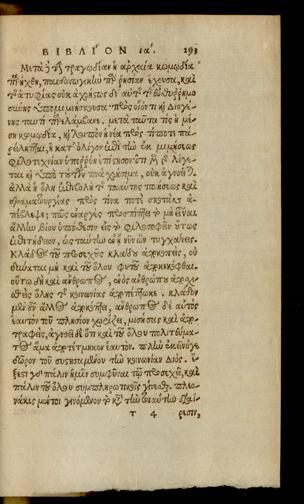 ΒΙΒΛΙΟΝ ια΄. 293
Μετὰ δὲ τὴν τραγῳδίαν ἡ ἀρχαία κωμῳδία
παρήχθη, παιδαγωγικὴν παρρησίαν ἔχουσα, καὶ
τῆς ἀτυφίας οὐκ ἀχρήστως δι' αὐτῆς τῆς εὐθυῤῥημο
σύνης ὑπομιμνήσκουσα· πρὸς οἷόν τι καὶ Διογέ-
νης ταυτὶ παρελάμβανε. μετὰ ταῦτα τίς ἡ μέ
ση κωμῳδία, καὶ λοιπὸν ἡ νέα πρὸς τί ποτε πα-
ρείληπται, ἣ κατ' ὀλίγον ἐπὶ τὴν ἐκ μιμήσεως
φιλοτεχνίαν ὑπερρύη ἐπίστησον. ὅτι μὲν γὰρ λέγε-
ται καὶ ὑπὸ τούτων τινὰ χρήσιμα, οὐκ ἀγνοεῖται.
ἀλλὰ ἡ ὅλη ἐπιβολὴ τῆς τοιαύτης ποιήσεως καὶ
δραματουργίας πρὸς τίνα ποτὲ σκοπὸν ἀ-
πέβλεψε; πῶς ἐναργὲς προσπίπτει τὸ μὴ εἶναι
ἄλλην βίου ὑπόθεσιν εἰς τὸ φιλοσοφεῖν οὕτως
ἐπιτήδειον, ὡς ταύτην ἐν ᾗ νῦν ὢν τυγχάνεις.
Κλάδος τοῦ προσεχοῦς κλάδου ἀποκοπεὶς, οὐ
δύναται μὴ καὶ τοῦ ὅλου φυτοῦ ἀποκεκόφθαι.
οὕτω δὴ καὶ ἄνθρωπος, ἑνὸς ἀνθρώπου ἀποσχι-
σθεὶς ὅλης τῆς κοινωνίας ἀποπέπτωκε. κλάδον
μὲν οὖν ἄλλος ἀποκόπτει, ἄνθρωπος δὲ αὐτὸς
ἑαυτὸν τοῦ πλησίον χωρίζει, μισήσας καὶ ἀπο-
τραφείς, ἀγνοεῖ δὲ ὅτι καὶ τοῦ ὅλου πολιτεύμα-
τος ἅμα ἀποτέτμηκεν ἑαυτόν. πλὴν ἐκεῖνό γε
δῶρον τοῦ συστησαμένου τὴν κοινωνίαν Διός. ἔ-
ξεστι γὰρ πάλιν ἡμῖν συμφῦναι τῷ προσεχεῖ, καὶ
πάλιν τοῦ ὅλου συμπληρωτικοῖς γενέσθαι. πλεο-
νάκις μέντοι γινόμενον τὸ κατὰ τὴν τοιαύτην διαί-
Τ 4 ρεσιν,